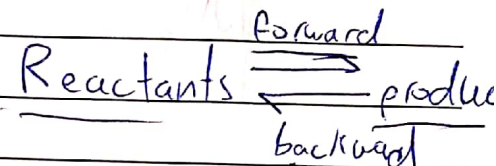 forward
Reactants ⇌ produc
backward